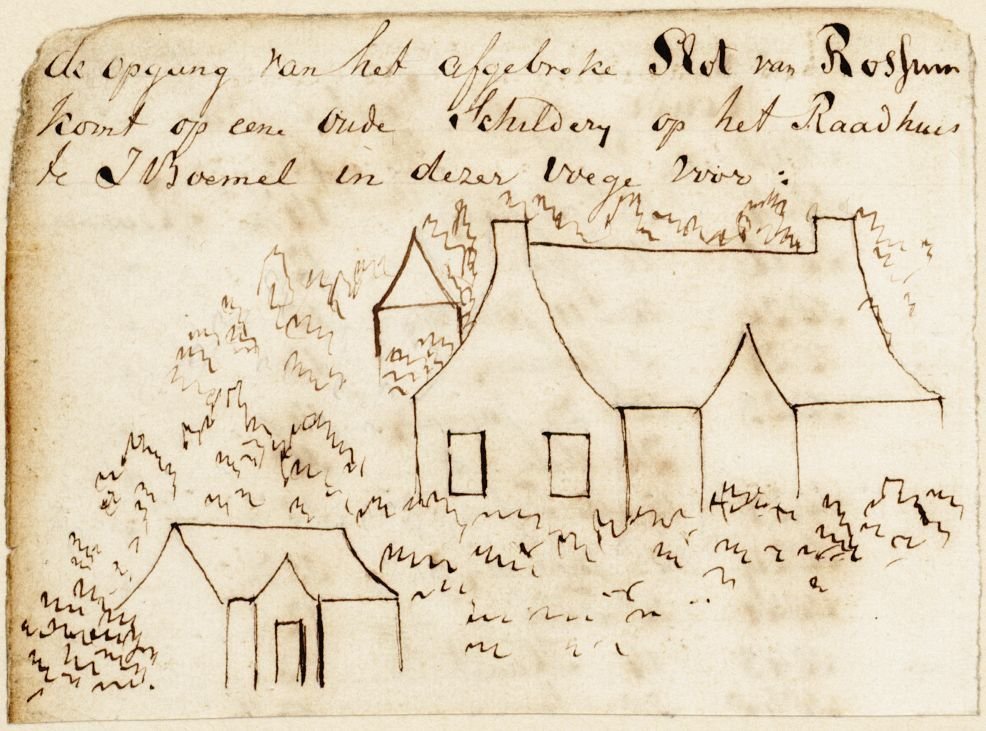 de opgang van het afgebroke Slot van Rossum
komt op eene oude Schildery op het Raadhuis
te ZBoemel in dezer voege voor :